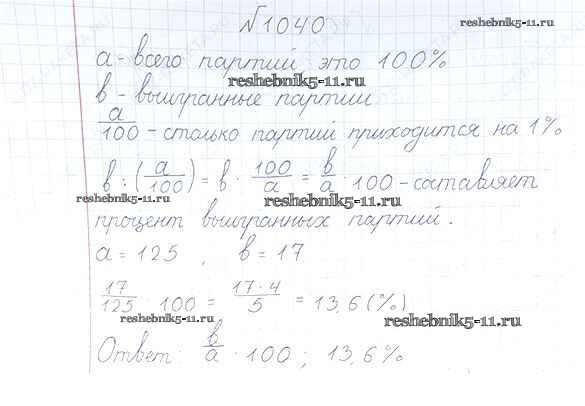 №1040
reshebnik5-11.ru
a - всего партий это 100%
reshebnik5-11.ru
b - выигранные партии
a/100 - столько партий приходится на 1%
b : (a/100) = b · 100/a = b/a · 100 - составляет
reshebnik5-11.ru
reshebnik5-11.ru
процент выигранных партий.
a = 125 , b = 17
17/125 · 100 = 17·4/5 = 13,6 (%)
reshebnik5-11.ru
reshebnik5-11.ru
Ответ: b/a · 100 ; 13,6%